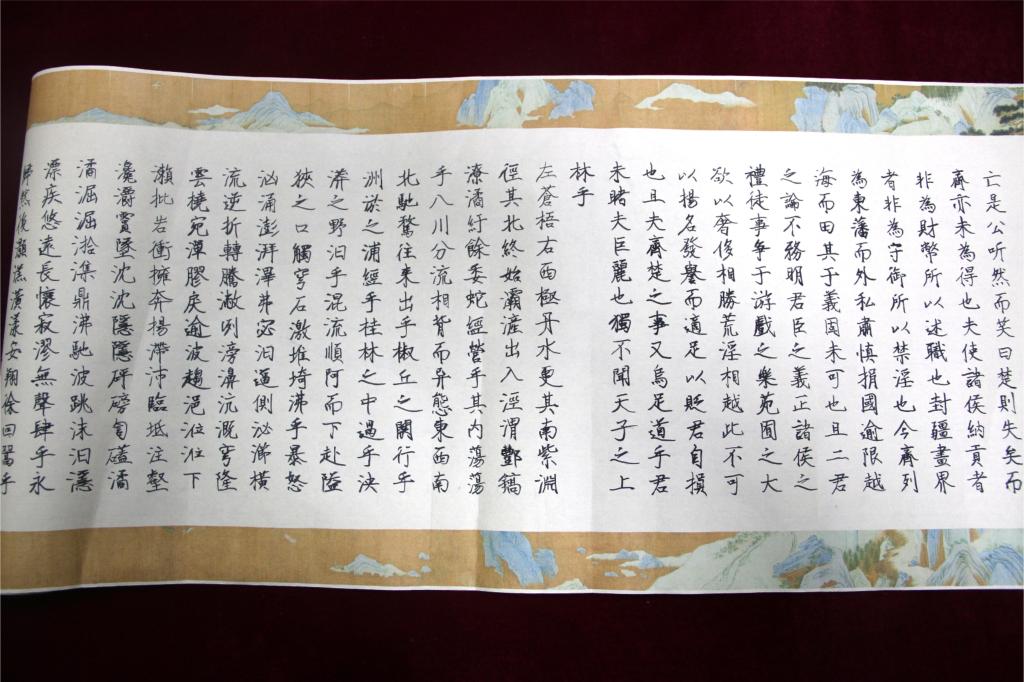 亡是公听然而笑曰楚則失矣而
齊亦未為得也夫使諸侯納貢者
非為財幣所以述職也封疆畫界
者非為守御所以禁淫也今齊列
為東藩而外私肅慎捐國逾限越
海而田其于義固未可也且二君
之論不務明君臣之義正諸侯之
禮徒事爭于游戲之樂苑囿之大
欲以奢侈相勝荒淫相越此不可
以揚名發譽而適足以貶君自損
也且夫齊楚之事又烏足道乎君
未睹夫巨麗也獨不聞天子之上
林乎
左蒼梧右西極丹水更其南紫淵
徑其北終始灞滻出入涇渭酆鎬
潦潏紆餘委蛇經營乎其內蕩蕩
乎八川分流相背而异態東西南
北馳騖往來出乎椒丘之闕行乎
洲淤之浦經乎桂林之中過乎泱
漭之野汩乎混流順阿而下赴隘
狹之口觸穹石激堆埼沸乎暴怒
洶涌澎湃滭弗宓汩逼側泌瀄橫
流逆折轉騰潎冽滂濞沆溉穹隆
雲橈宛潬膠戾逾波趨浥涖涖下
瀨批岩衝擁奔揚滯沛臨坻注壑
瀺灂霣墜沈沈隱隱砰磅訇礚潏
潏淈淈湁潗鼎沸馳波跳沫汩㵫
漂疾悠遠長懷寂漻無聲肆乎永
歸然後灝溔潢漾安翔徐回翯乎